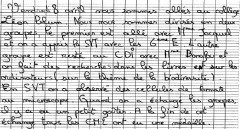 Vendredi 8 avril nous sommes allés au collège
Léon Blum. Nous nous sommes divisés en deux
groupes, le premier est allé avec Mme Jacquel
et on a appris la SVT avec les 6ème E. L'autre
groupe est resté au CDI avec Mme et
on a fait des recherches dans les livres et sur les
ordinateurs (sur le thème de la biodiversité).
En SVT on a observé des cellules de
au microscope. Quand on a échangé les groupes,
on a un petit goûter. A la fin de
échange tous les CM2 ont eu une médaille